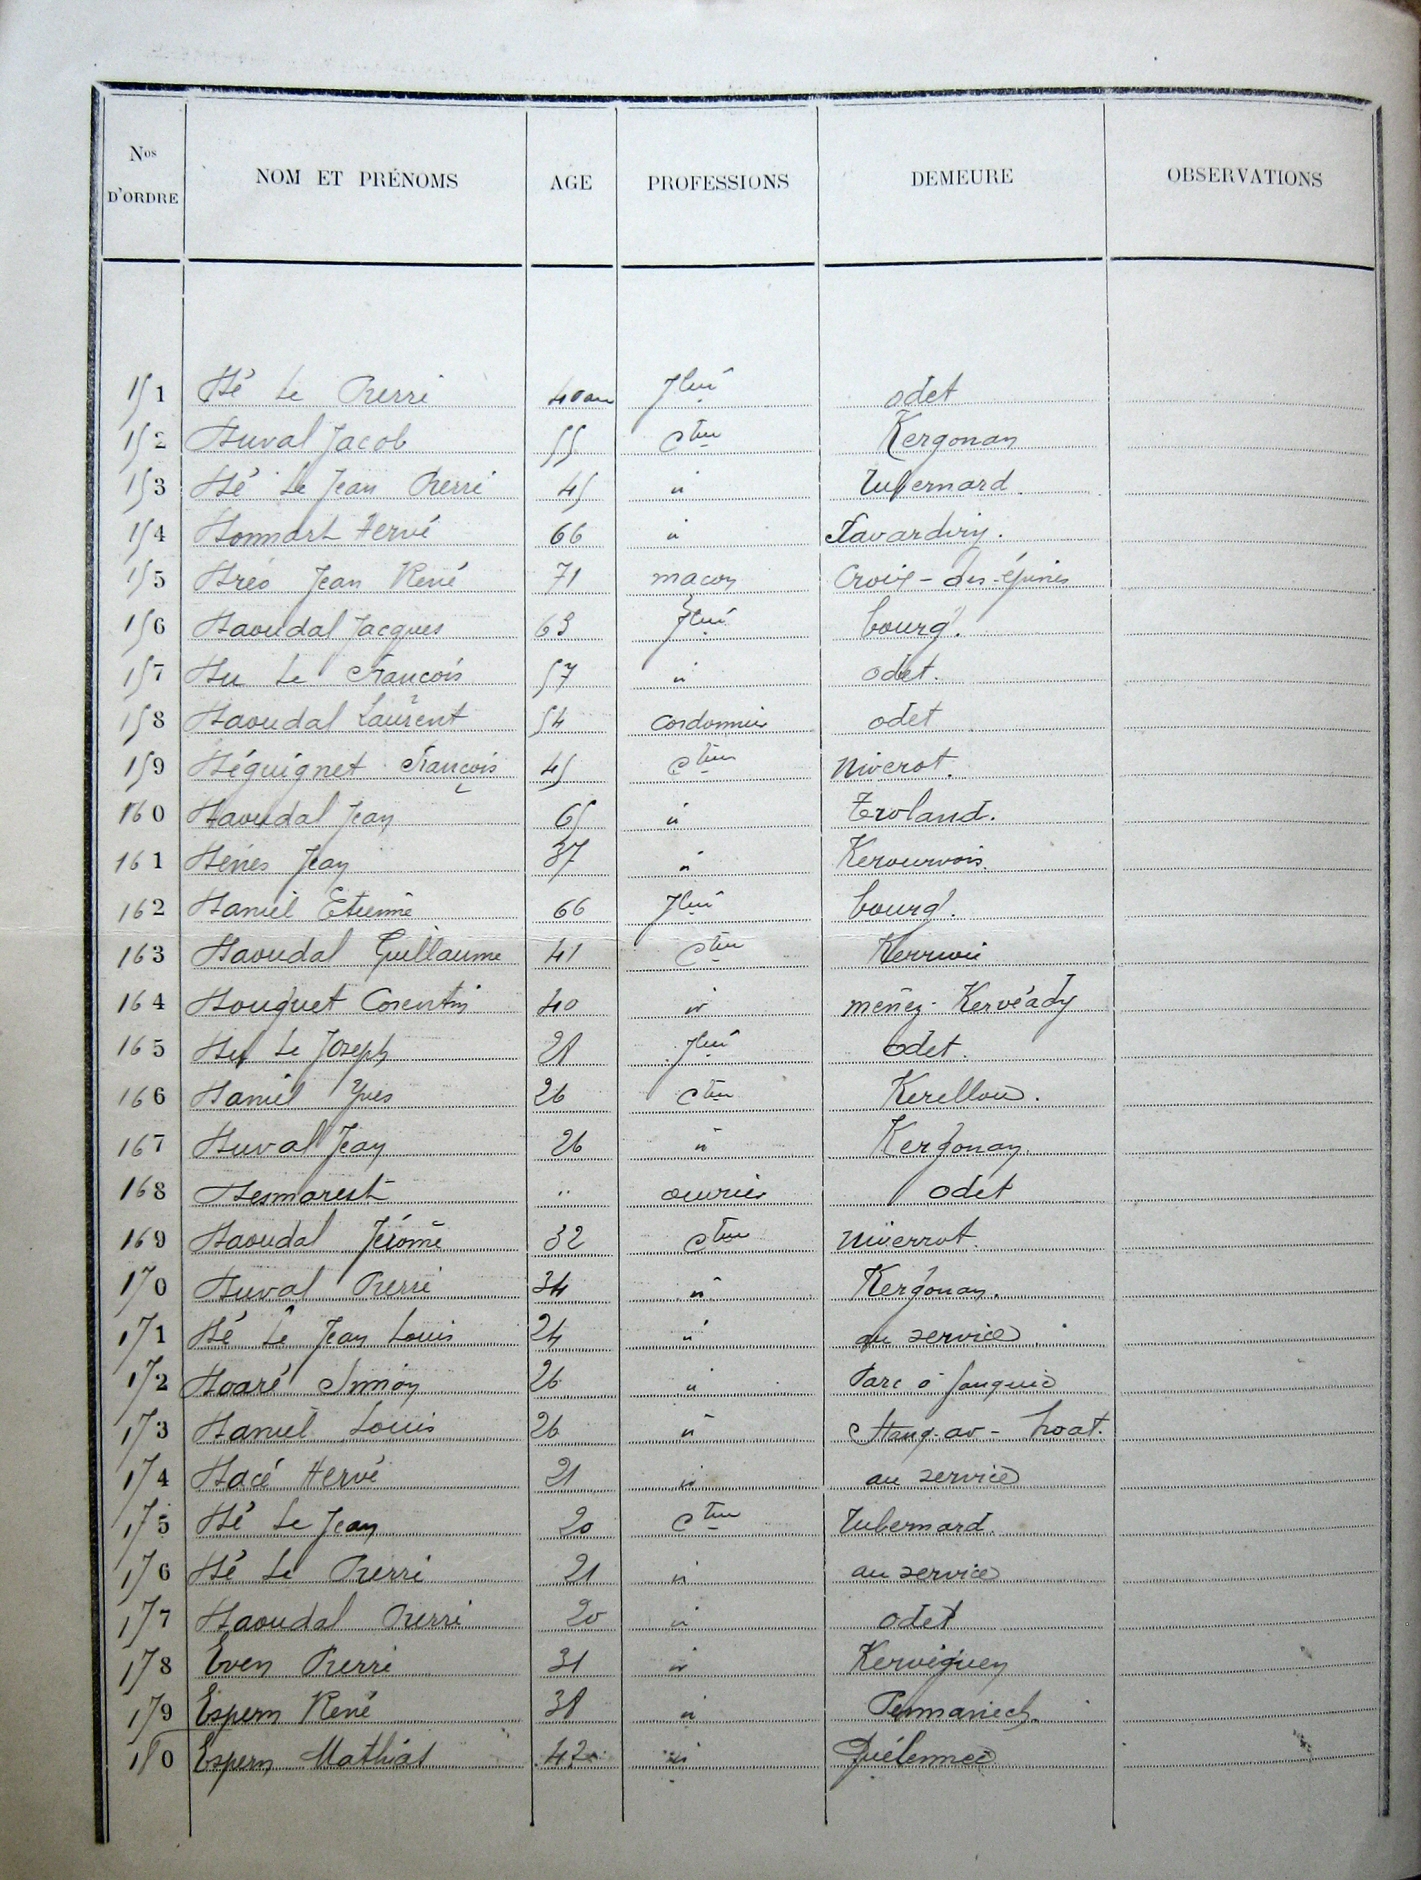 Nos D'ORDRE NOM ET PRÉNOMS AGE PROFESSIONS DEMEURE OBSERVATIONS
151 Dé Le Pierre 40 ans Jlier odet
152 Duval Jacob 55 Cteur Kergonan
153 Dé Le Jean Pierre 45 " Tulbernard
154 Donnart Hervé 66 "
155 Jean René 71 macon Croix-des-Épines
156 Daoudal Jacques 63 Jlier bourg.
157 Du Le François 57 " odet.
158 Daoudal Laurent 54 Cordonnier odet
159 Déguignet François 45 Cteur Niverot.
160 Daoudal Jean 65 " Troland.
161 Dénès Jean 37 " Kerourvois.
162 Daniel Etienne 66 Jlier bourg.
163 Daoudal Guillaume 41 Cteur
164 Corentin 40 " menez-Kervéady
165 Du Le Joseph 28 Jlier odet.
166 Daniel Yves 26 Cteur Kerellou.
167 Duval Jean 26 " Kergonan.
168 Desmarest " ouvrier odet
169 Daoudal Jérôme 32 Cteur Niverrot.
170 Duval Pierre 34 " Kergonan.
171 Dé Le Jean Louis 24 " au service
172 Doaré Simon 26 "
173 Daniel Louis 26 " Stang-ar-hoat.
174 Dacé Hervé 21 " au service
175 Dé Le Jean 20 Cteur Tulbernard.
176 Dé Le Pierre 21 " au service
177 Daoudal Pierre 20 " odet
178 Even Pierre 31 " Kervéguen
179 Espern René 38 " Pennanech.
180 Espern Mathias 42 " Quélennec